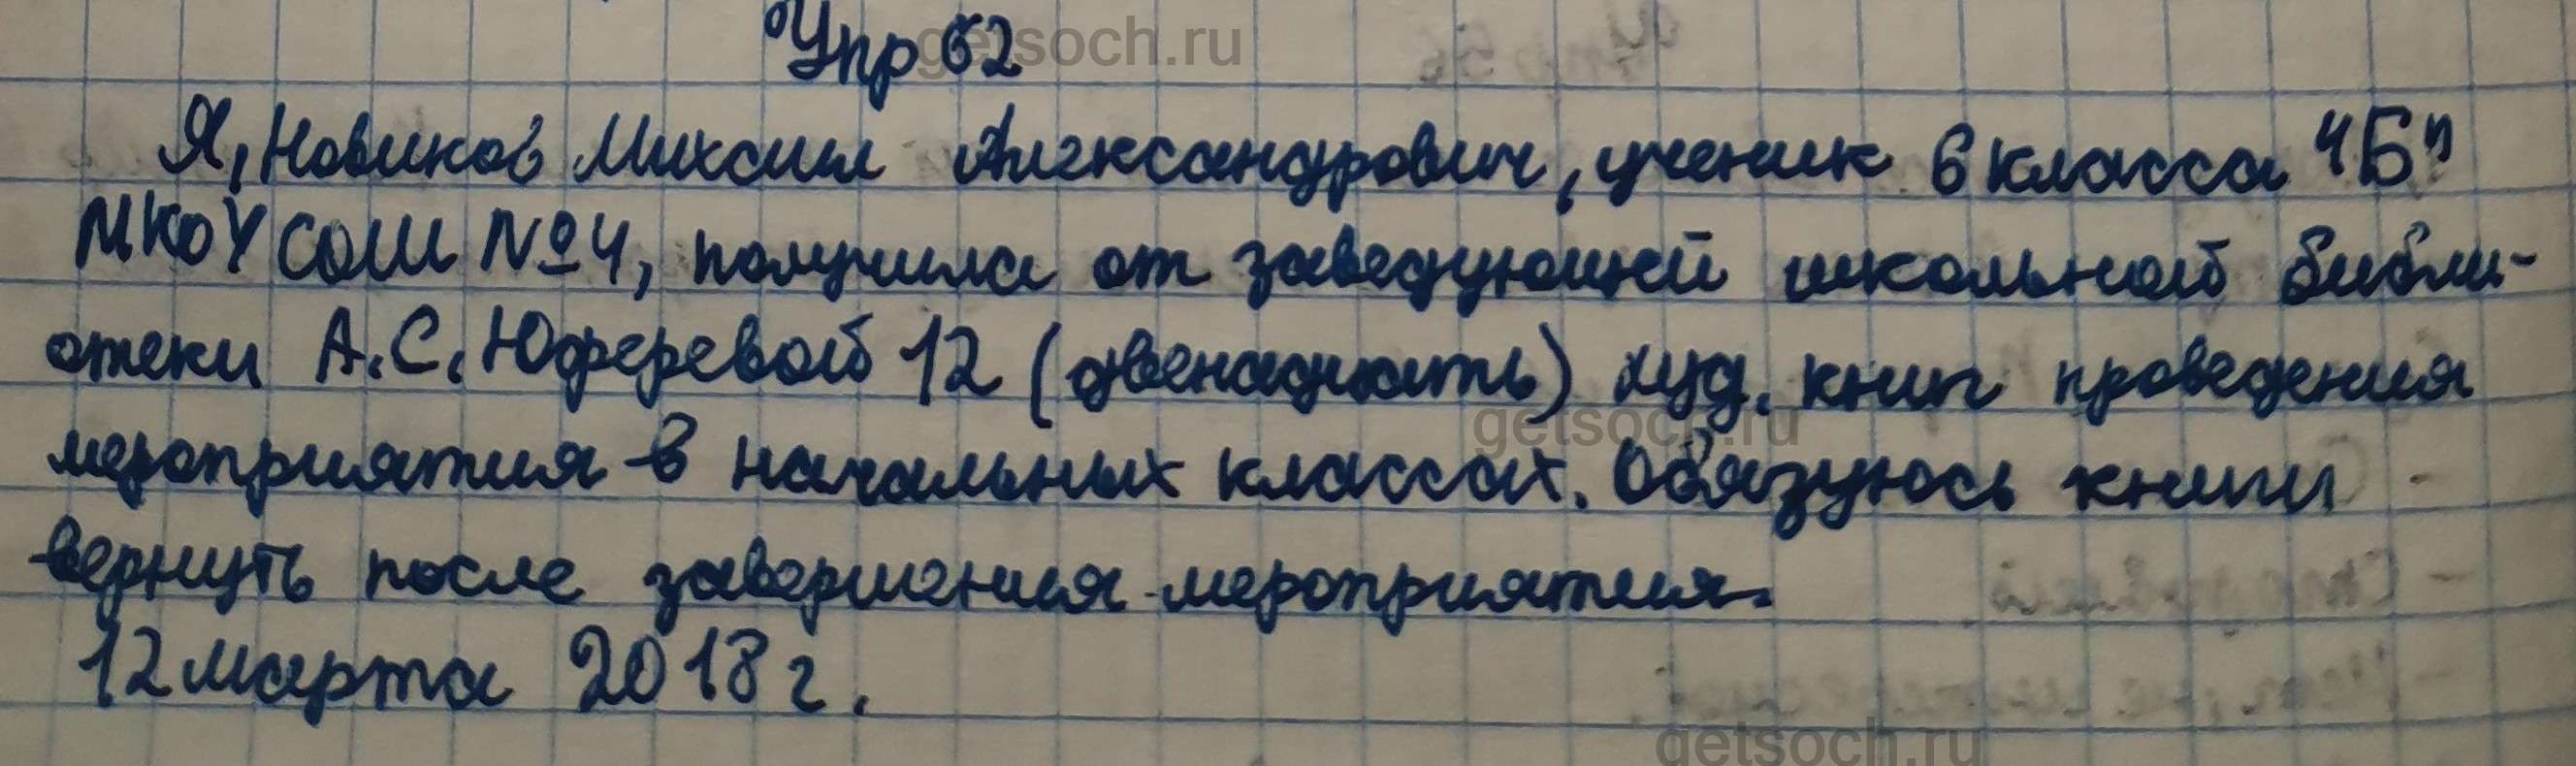 Упр 62
Я, Новиков Михаил Александрович, ученик 6 класса "Б"
МКОУ СОШ №4, получила от заведующей школьной библи-
отеки А.С. Юферевой 12 (двенадцать) худ. книг проведения
мероприятия в начальных классах. Обязуюсь книги
вернуть после завершения мероприятия.
12 марта 2018 г.
getsoch.ru
getsoch.ru
getsoch.ru